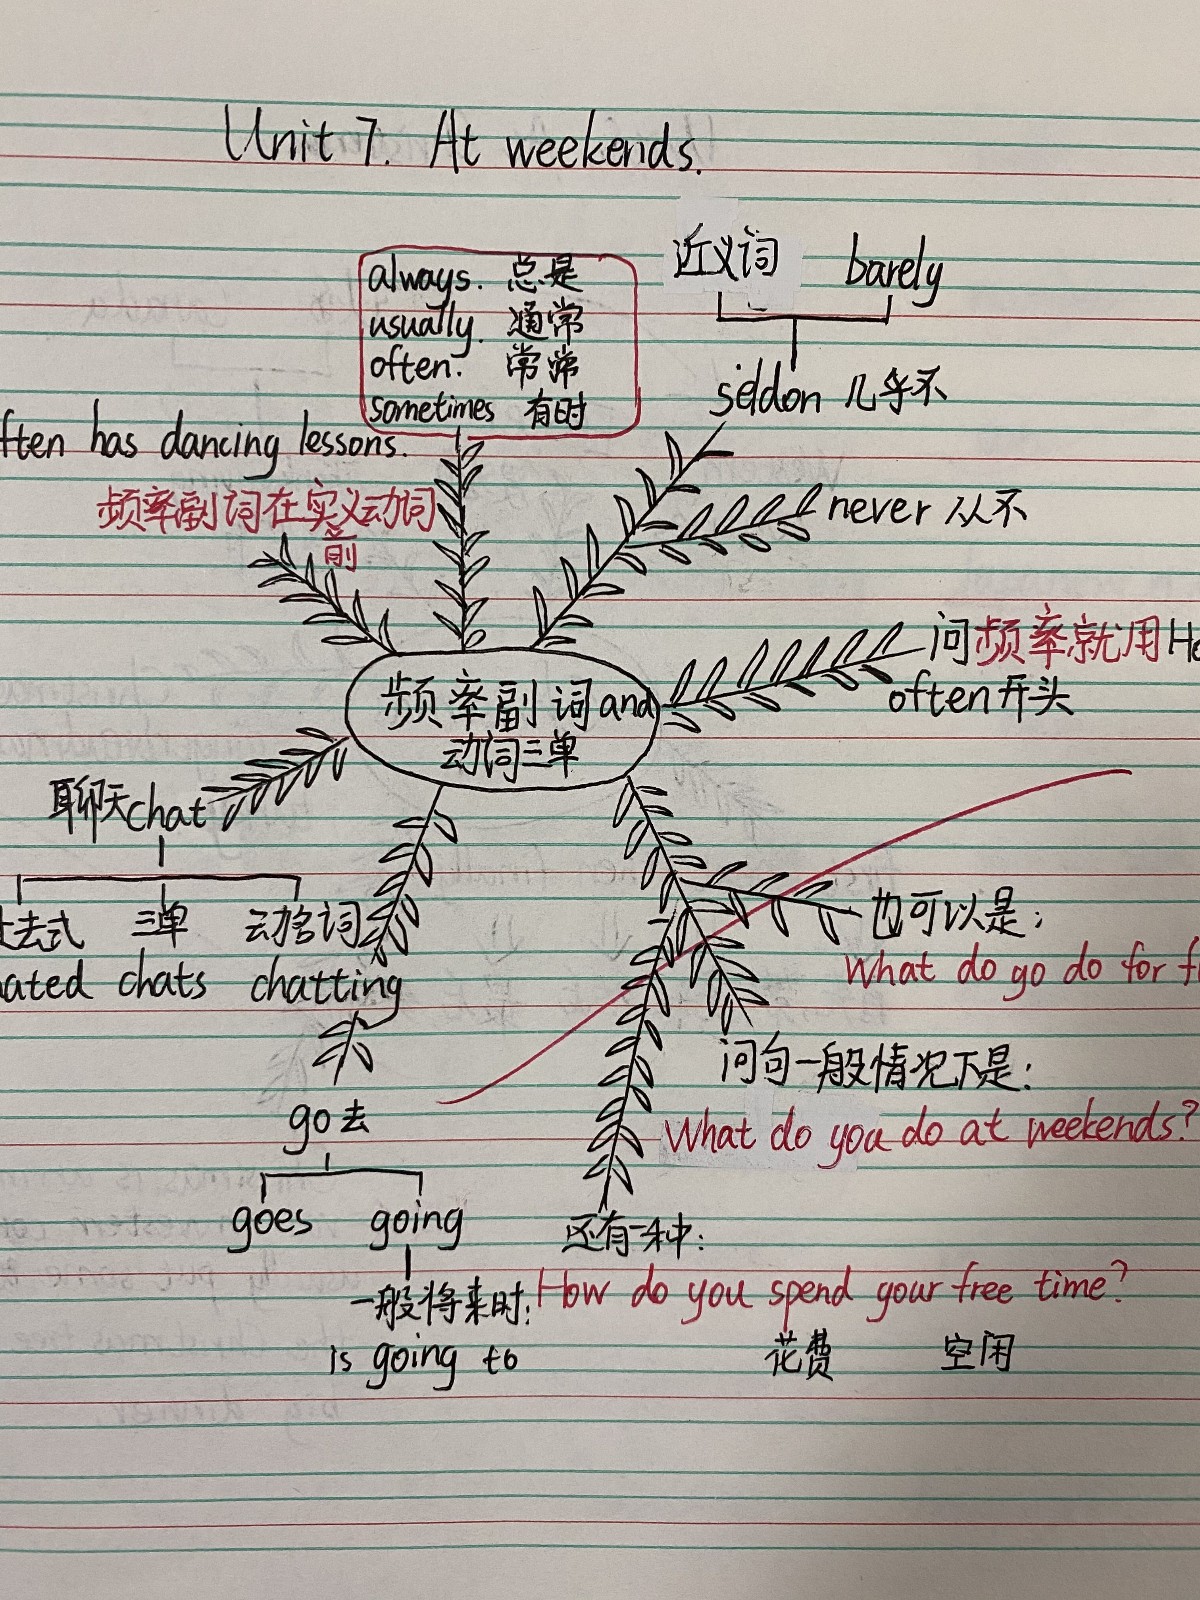 Unit 7. At weekends.
always. 总是
usually. 通常
often. 常常
sometimes 有时
近义词 barely
seldon 几乎不
never 从不
ften has dancing lessons.
频率副词在实义动词
前
问频率就用Ho
often开头
频率副词and
动词三单
聊天chat
去式 三单 动名词
ated chats chatting
go去
goes going
一般将来时:
is going to
也可以是:
What do go do for f
问句一般情况下是:
What do you do at weekends?
还有一种:
How do you spend your free time?
花费 空闲